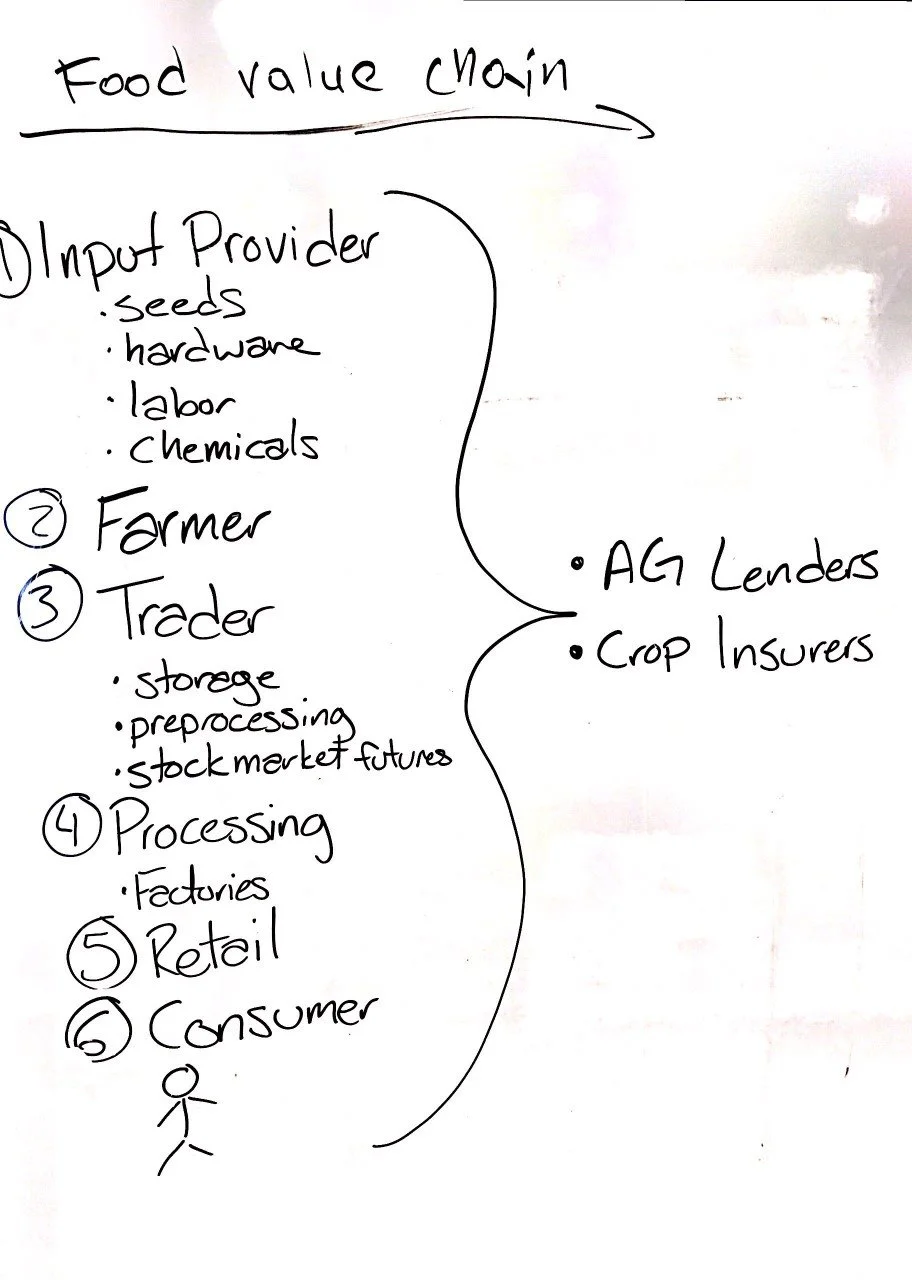 Food value chain
① Input Provider
· seeds
· hardware
· labor
· chemicals
② Farmer
③ Trader
· storage
· preprocessing
· stock market futures
④ Processing
· Factories
⑤ Retail
⑥ Consumer
• AG Lenders
• Crop Insurers